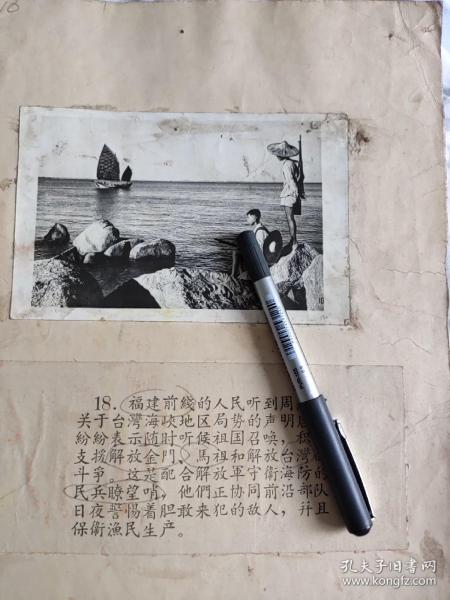 18. 福建前綫的人民听到周
关于台灣海峽地区局势的声明
紛紛表示随时听候祖国召唤，积
支援解放金門、馬祖和解放台灣
斗爭。这是配合解放軍守衛海防的
民兵瞭望哨，他們正协同前沿部队
日夜警惕着胆敢来犯的敌人，幷且
保衛漁民生产。
孔夫子旧书网
www.kongfz.com